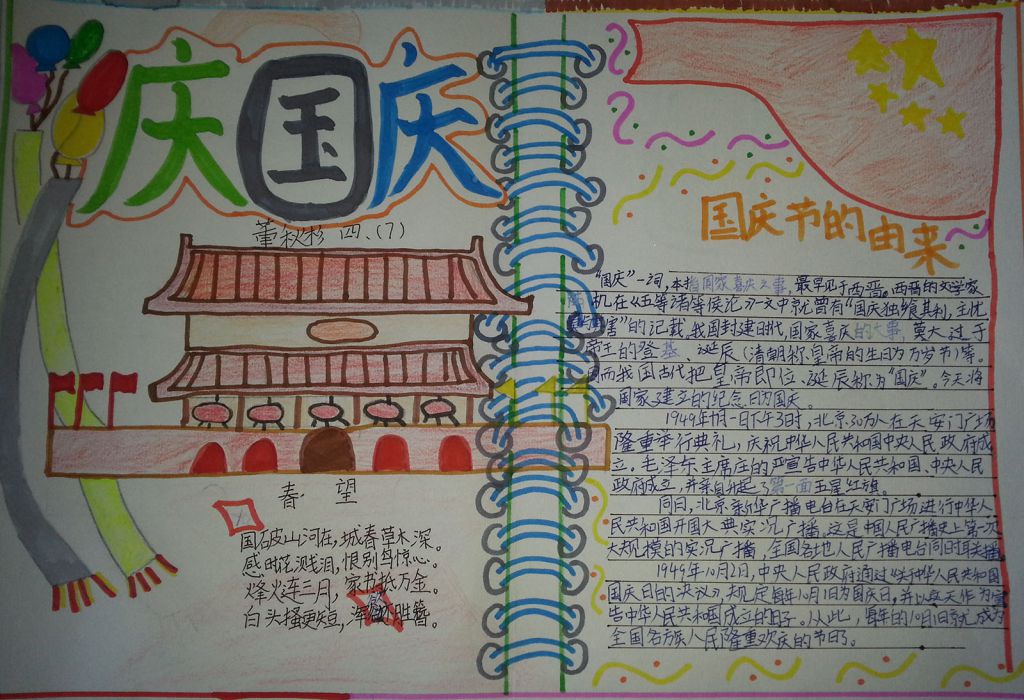 庆国庆
董秋杉 四、(7)
春 望
国破山河在，城春草木深。
感时花溅泪，恨别鸟惊心。
烽火连三月，家书抵万金。
白头搔更短，浑欲不胜簪。
国庆节的由来
"国庆"一词，本指国家喜庆之事，最早见于西晋。西晋的文学家
机在《五等诸侯论》一文中就曾有"国庆独飨其利，主忧
害"的记载。我国封建时代，国家喜庆的大事，莫大过于
帝王的登基、诞辰(清朝称皇帝的生日为万岁节)等。
因而我国古代把皇帝即位、诞辰称为"国庆"。今天将
国家建立的纪念日为国庆。
1949年10月一日下午3时，北京30万人在天安门广场
隆重举行典礼，庆祝中华人民共和国中央人民政府成
立。毛泽东主席庄的严宣告中华人民共和国、中央人民
政府成立，并亲自升起了第一面五星红旗。
同日，北京新华广播电台在天安门广场进行中华人
民共和国开国大典实况广播。这是中国人民广播史上第一次
大规模的实况广播，全国各地人民广播电台同时联播。
1949年10月2日，中央人民政府通过《关于中华人民共和国
国庆日的决议》，规定每年10月1日为国庆日，并以这天作为宣
告中华人民共和国成立的日子。从此，每年的10月1日就成为
全国各族人民隆重欢庆的节日了。